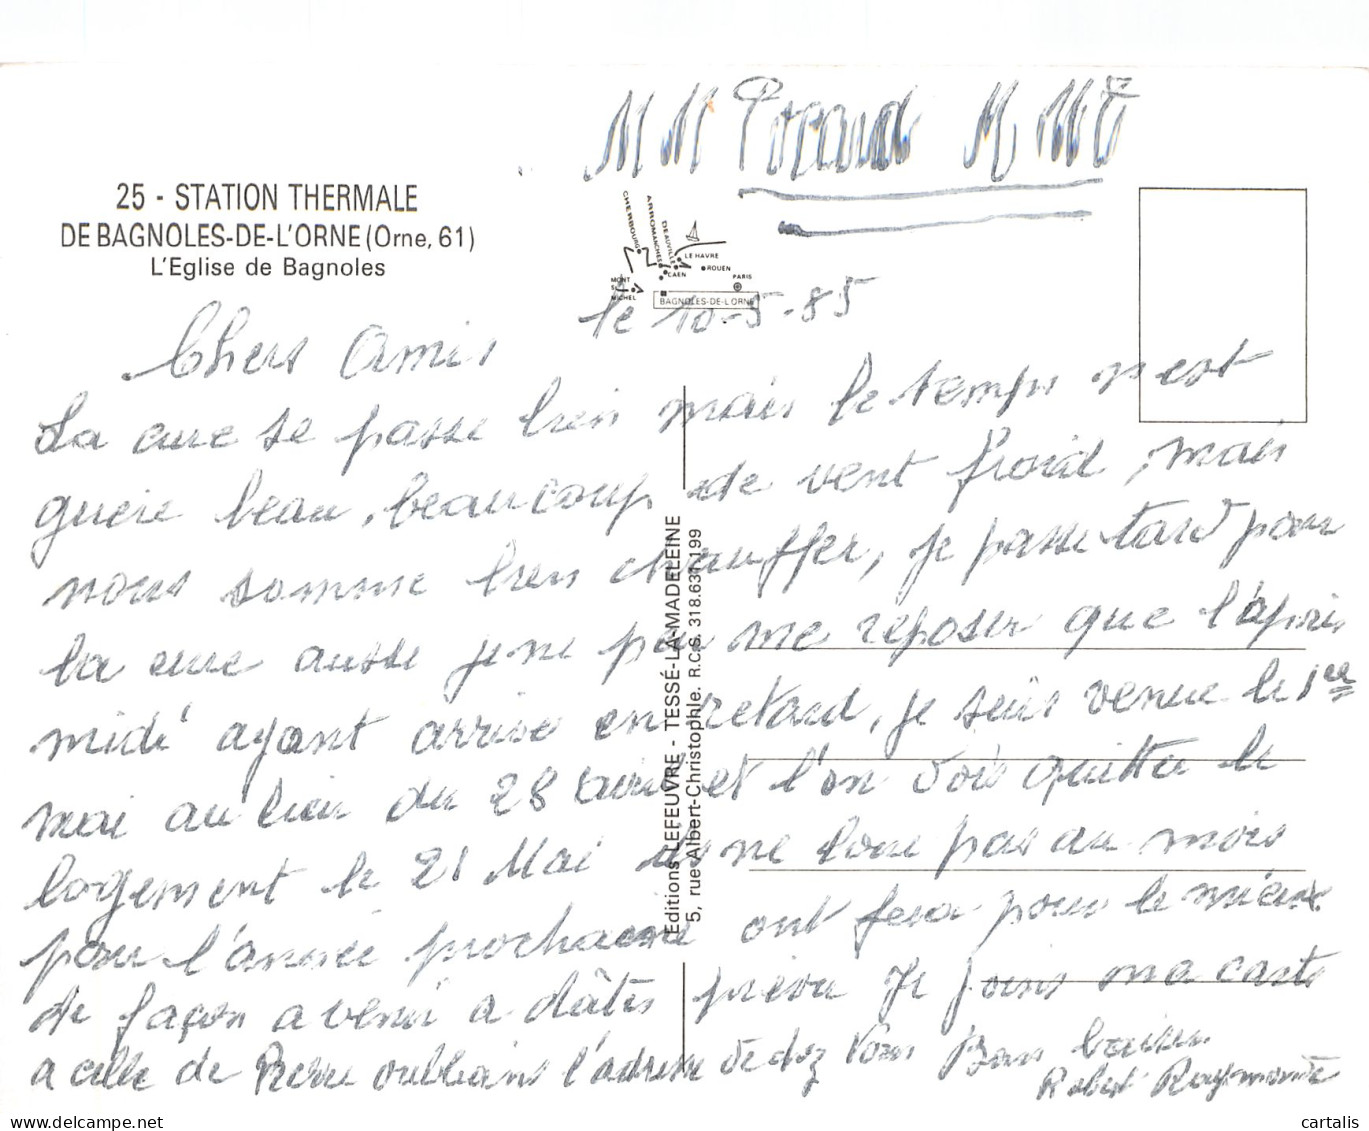 M M Pocard M MME
25 - STATION THERMALE
DE BAGNOLES-DE-L'ORNE (Orne, 61)
L'Eglise de Bagnoles
CHERBOURG
ARROMANCHES
DEAUVILLE
LE HAVRE
CAEN
ROUEN
PARIS
MONT
ST
MICHEL
BAGNOLES-DE-L'ORNE
le 10-5-85
Chers Amis
La cure se passe bien mais le temps n'est
guere beau, beaucoup de vent froid, mais
nous somme bien chauffer, je passe tard pour
la cure aussi je ne peu me reposer que l'après
midi ayant arrivé en retard, je suis venue le 1er
mai au lieu du 28 avril et l'on dois quitter le
logement le 21 Mai ne loue pas au mois
pour l'année prochaine ont fera pour le mieux
de façon a venir a dâtes prévu Je joins ma carte
a celle de Pierre oublians l'adresse de chez vous Bons baisers
Robert Raymonde
Editions LEFEUVRE - TESSÉ-LA-MADELEINE
5, rue Albert-Christophle. R.C.S. 318.631.199
cartalis